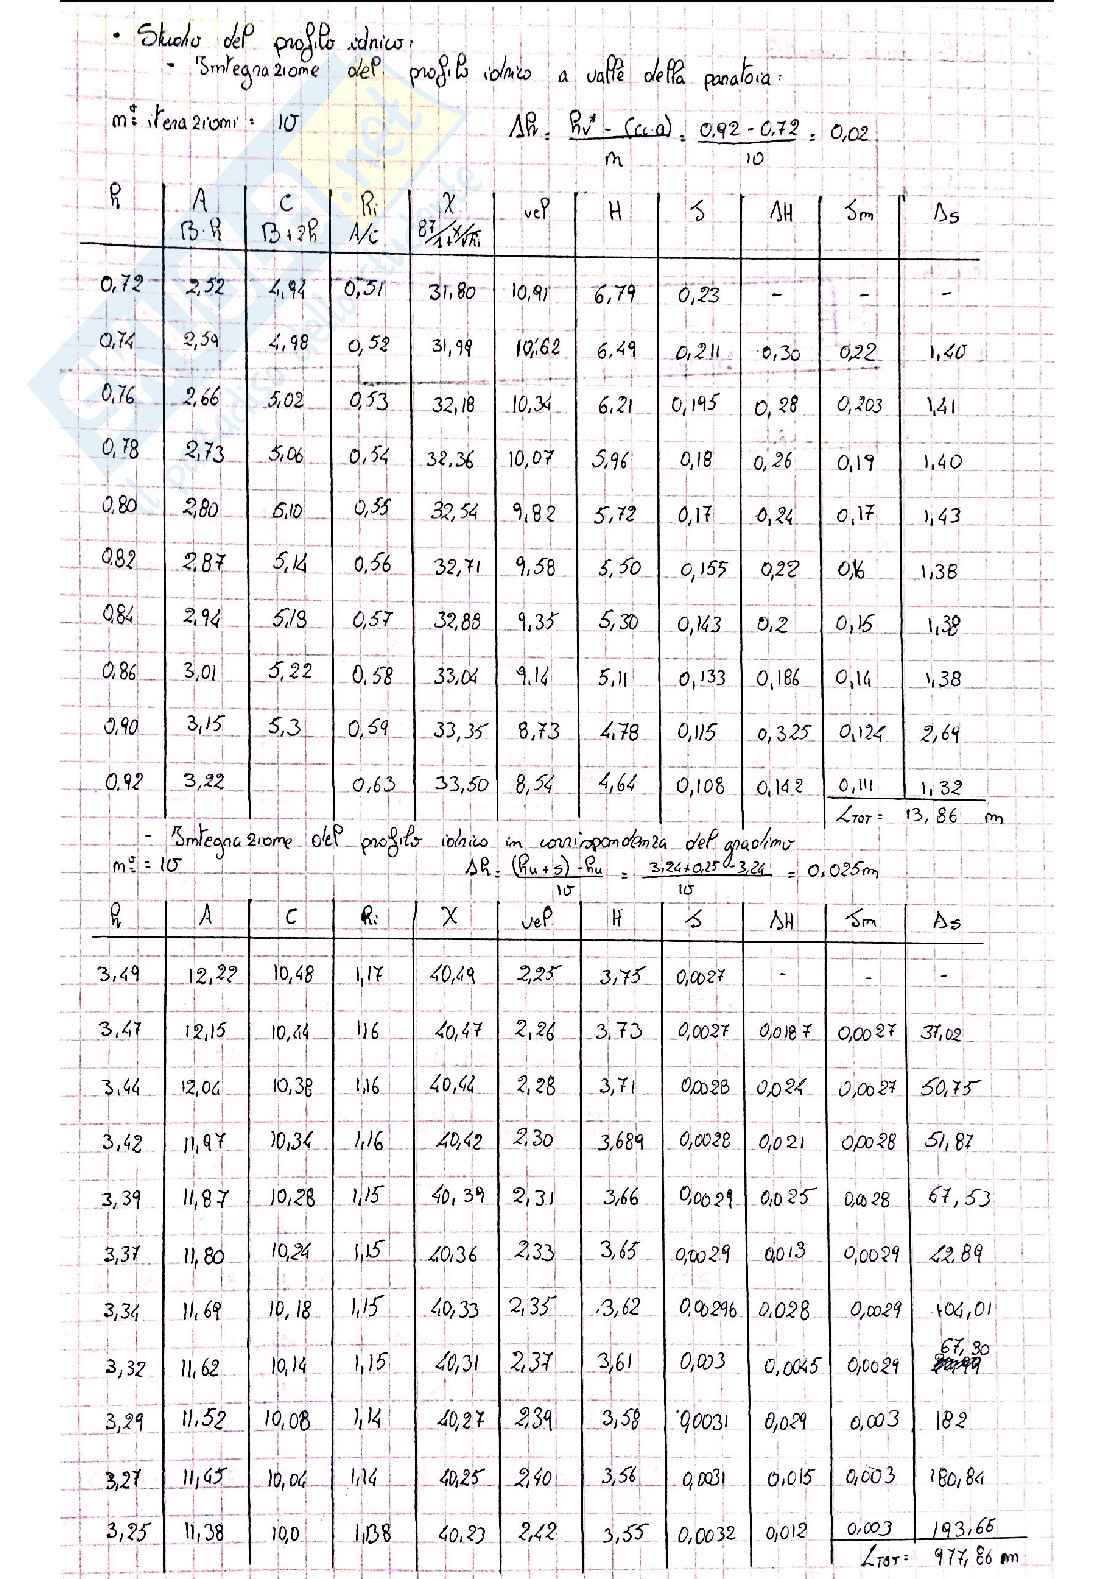 • Studio del profilo idrico:
- Integrazione del profilo idrico a valle della paratoia:
n° iterazioni = 10 Δh = hv* - (cc·a) / n = 0,92 - 0,72 / 10 = 0,02
h A C Ri X vel H J ΔH Jm Δs
B·h B+2h A/C 87/1+γ/√Ri
0,72 2,52 4,94 0,51 31,80 10,91 6,79 0,23 - - -
0,74 2,59 4,98 0,52 31,99 10,62 6,49 0,211 0,30 0,22 1,40
0,76 2,66 5,02 0,53 32,18 10,34 6,21 0,195 0,28 0,203 1,41
0,78 2,73 5,06 0,54 32,36 10,07 5,96 0,18 0,26 0,19 1,40
0,80 2,80 5,10 0,55 32,54 9,82 5,72 0,17 0,24 0,17 1,43
0,82 2,87 5,14 0,56 32,71 9,58 5,50 0,155 0,22 0,16 1,38
0,84 2,94 5,18 0,57 32,88 9,35 5,30 0,143 0,2 0,15 1,38
0,86 3,01 5,22 0,58 33,04 9,14 5,11 0,133 0,186 0,14 1,38
0,90 3,15 5,3 0,59 33,35 8,73 4,78 0,115 0,325 0,124 2,69
0,92 3,22 0,63 33,50 8,54 4,64 0,108 0,142 0,111 1,32
LTOT = 13,86 m
- Integrazione del profilo idrico in corrispondenza del gradino
n° = 10 Δh = (hu+s) - hu / 10 = 3,24+0,25-3,24 / 10 = 0,025m
h A C Ri X vel H J ΔH Jm Δs
3,49 12,22 10,48 1,17 40,49 2,25 3,75 0,0027 - - -
3,47 12,15 10,44 1,16 40,47 2,26 3,73 0,0027 0,0187 0,0027 37,02
3,44 12,04 10,38 1,16 40,44 2,28 3,71 0,0028 0,024 0,0027 50,75
3,42 11,97 10,34 1,16 40,42 2,30 3,689 0,0028 0,021 0,0028 51,87
3,39 11,87 10,28 1,15 40,39 2,31 3,66 0,0029 0,025 0,0028 67,53
3,37 11,80 10,24 1,15 40,36 2,33 3,65 0,0029 0,013 0,0029 42,89
3,34 11,69 10,18 1,15 40,33 2,35 3,62 0,00296 0,028 0,0029 104,01
3,32 11,62 10,14 1,15 40,31 2,37 3,61 0,003 0,0045 0,0029 67,30
3,29 11,52 10,08 1,14 40,27 2,39 3,58 0,0031 0,029 0,003 182
3,27 11,45 10,04 1,14 40,25 2,40 3,56 0,0031 0,015 0,003 180,84
3,25 11,38 10,0 1,138 40,23 2,42 3,55 0,0032 0,012 0,003 193,65
LTOT = 977,86 m